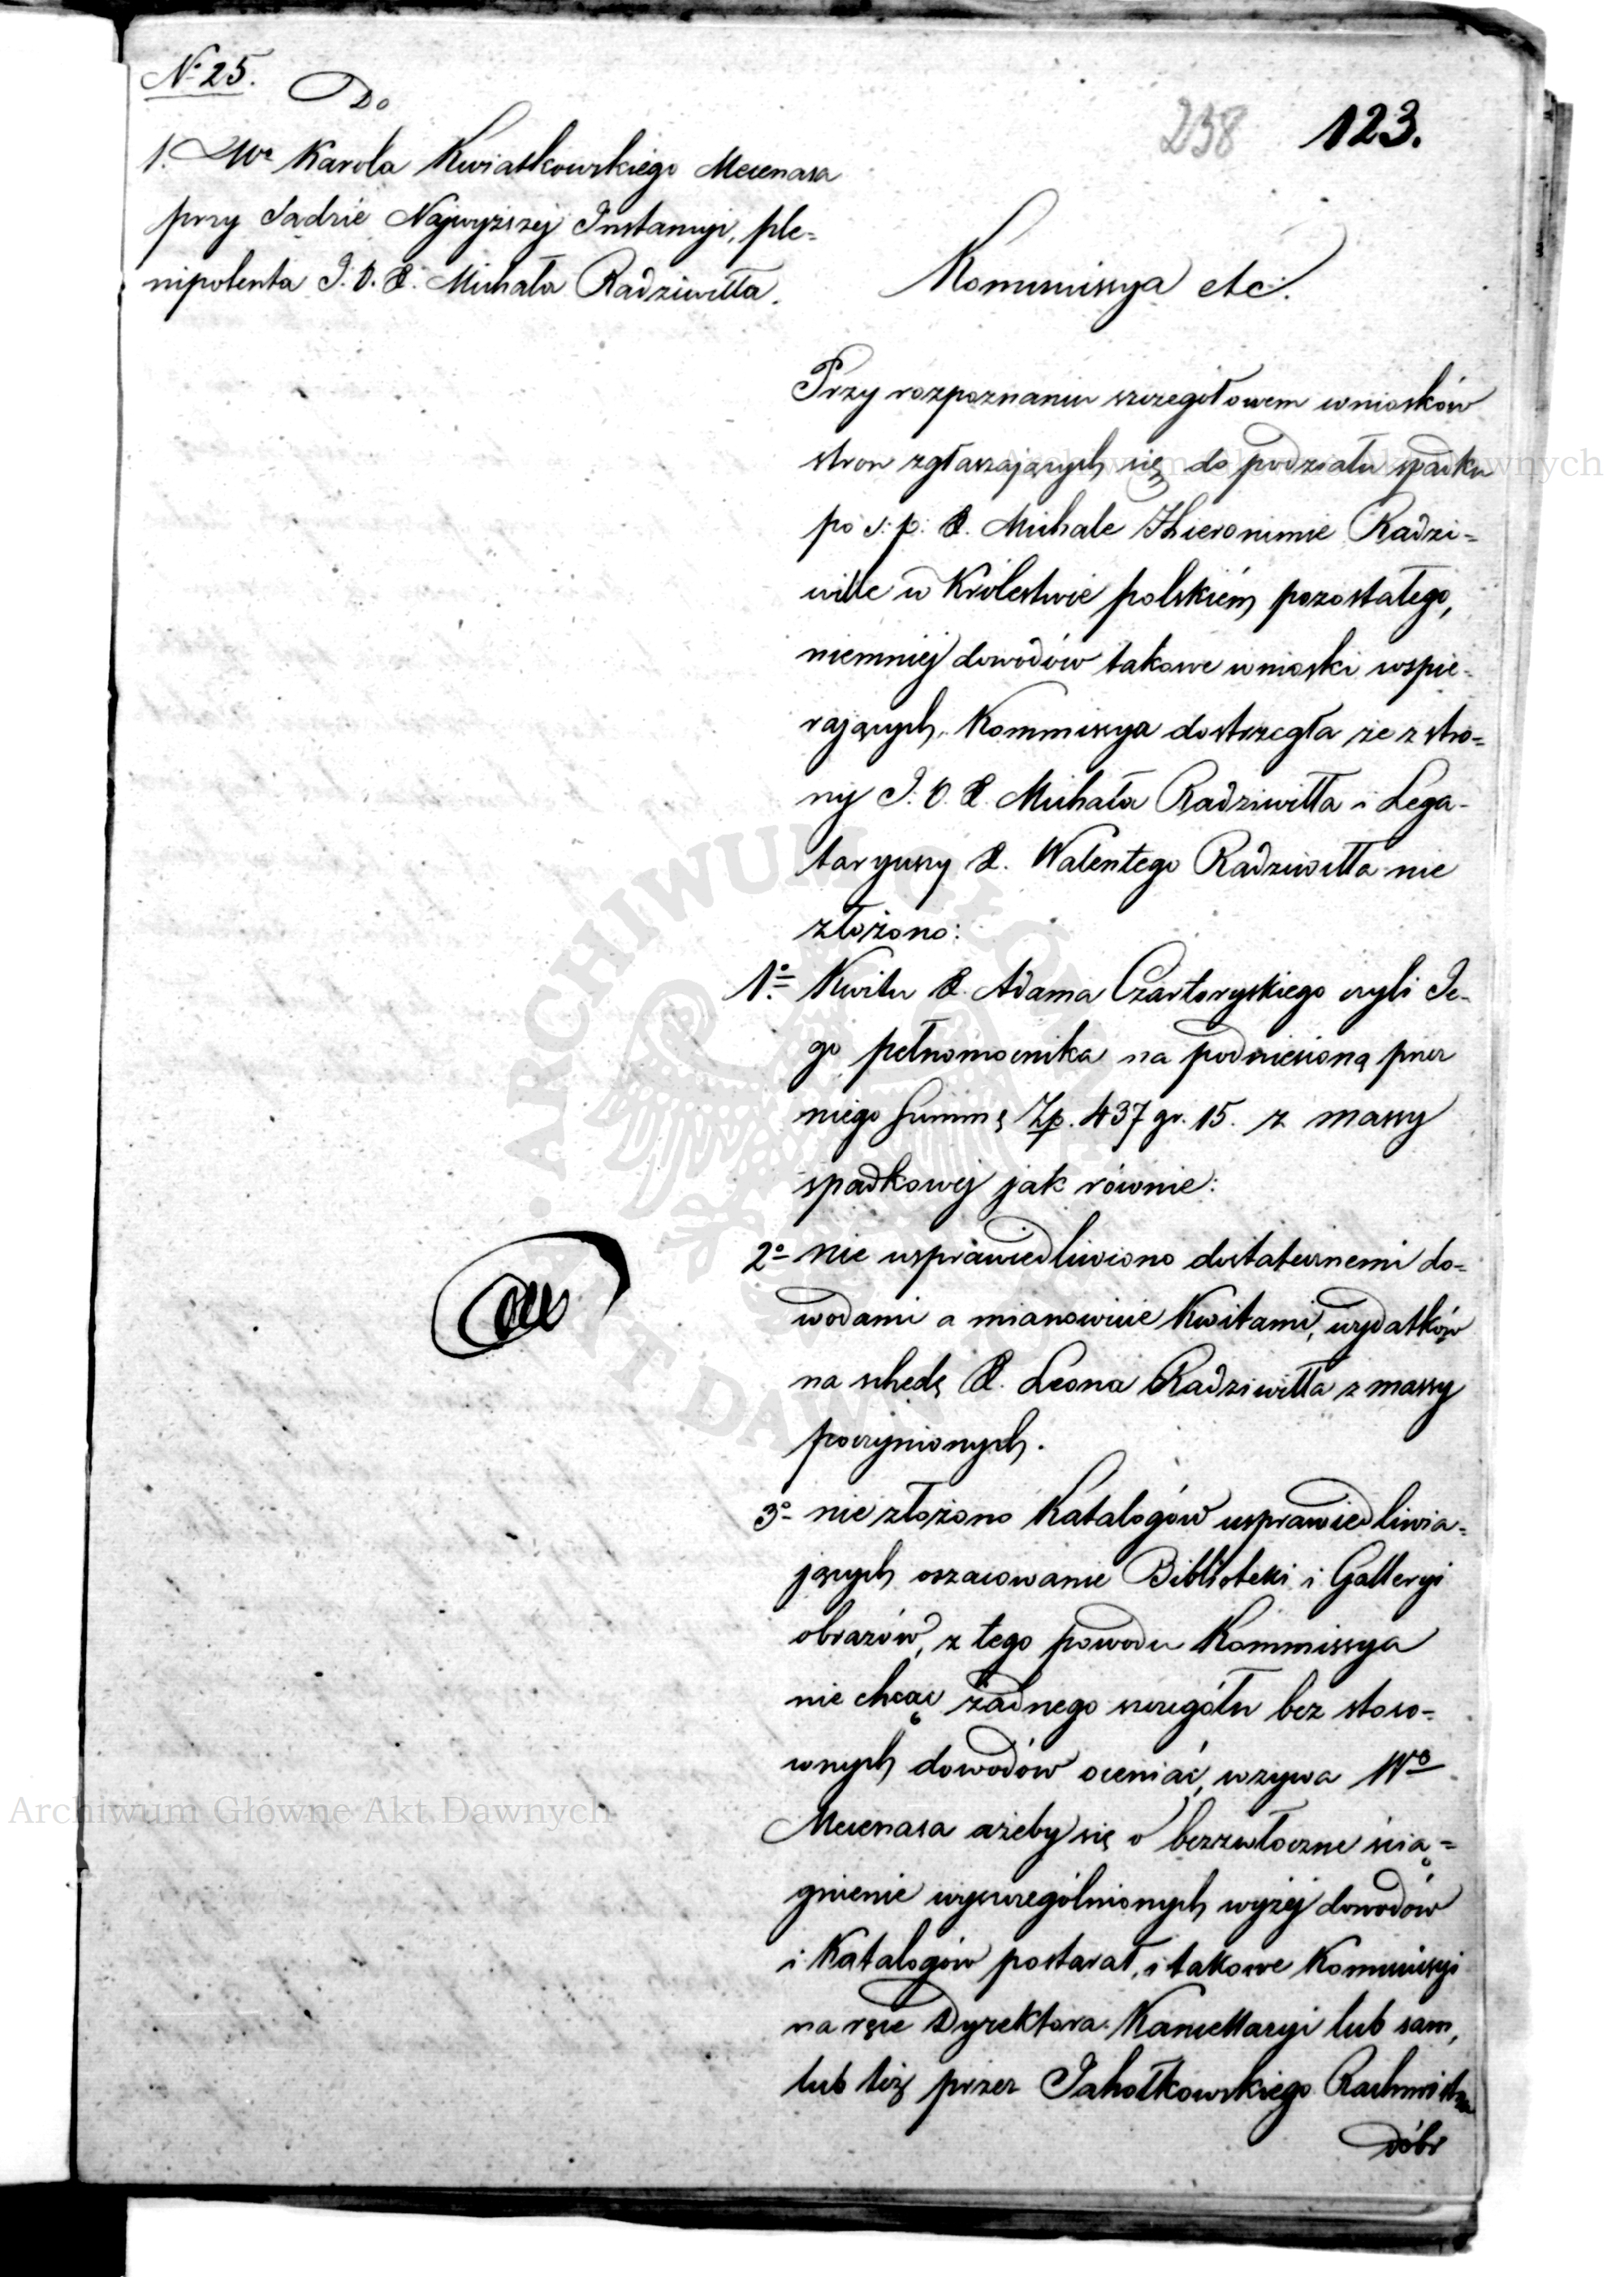 № 25.
Do
1. Wo Karola Kwiatkowskiego Mecenasa
przy Sądzie Najwyższej Instancyi, ple=
nipotenta J. O. X. Michała Radziwiłła.
238 123.
Kommissya etc:
Przy rozpoznaniu szczegółowem wniosków
stron zgłaszających się do podziału spadku
po ś: p: X. Michale Hieronimie Radzi=
wille w Królestwie polskiém pozostałego,
niemniej dowodów takowe wnioski wspie-
rających, Kommissya dostrzegła że z stro=
ny J. O. X. Michała Radziwiłła i Lega-
taryuszy X. Walentego Radziwiłła nie
złożono:
1o Kwitu X. Adama Czartoryskiego czyli Je-
go pełnomocnika na podniesioną przez
niego Summę Zp. 437 gr. 15. z massy
spadkowej jak równie:
2o nie usprawiedliwiono dostatecznemi do=
wodami a mianowicie Kwitami, wydatków
na schedę X. Leona Radziwiłła z massy
poczynionych.
3o nie złożono Katalogów usprawiedliwia=
jących oszacowanie Biblioteki i Galleryi
obrazów, z tego powodu Kommissya
nie chcąc żadnego szczegółu bez stoso=
wnych dowodów oceniać, wzywa Wo
Mecenasa ażeby się o bezzwłoczne ścią=
gnienie wyszczególnionych wyżej dowodów
i Katalogów postarał, i takowe Kommissyi
na ręce Dyrektora Kancellaryi lub sam,
lub też przez Rachmistrza
dóbr
ARCHIWUM GŁÓWNE AKT DAWNYCH
Archiwum Główne Akt Dawnych
Archiwum Główne Akt Dawnych